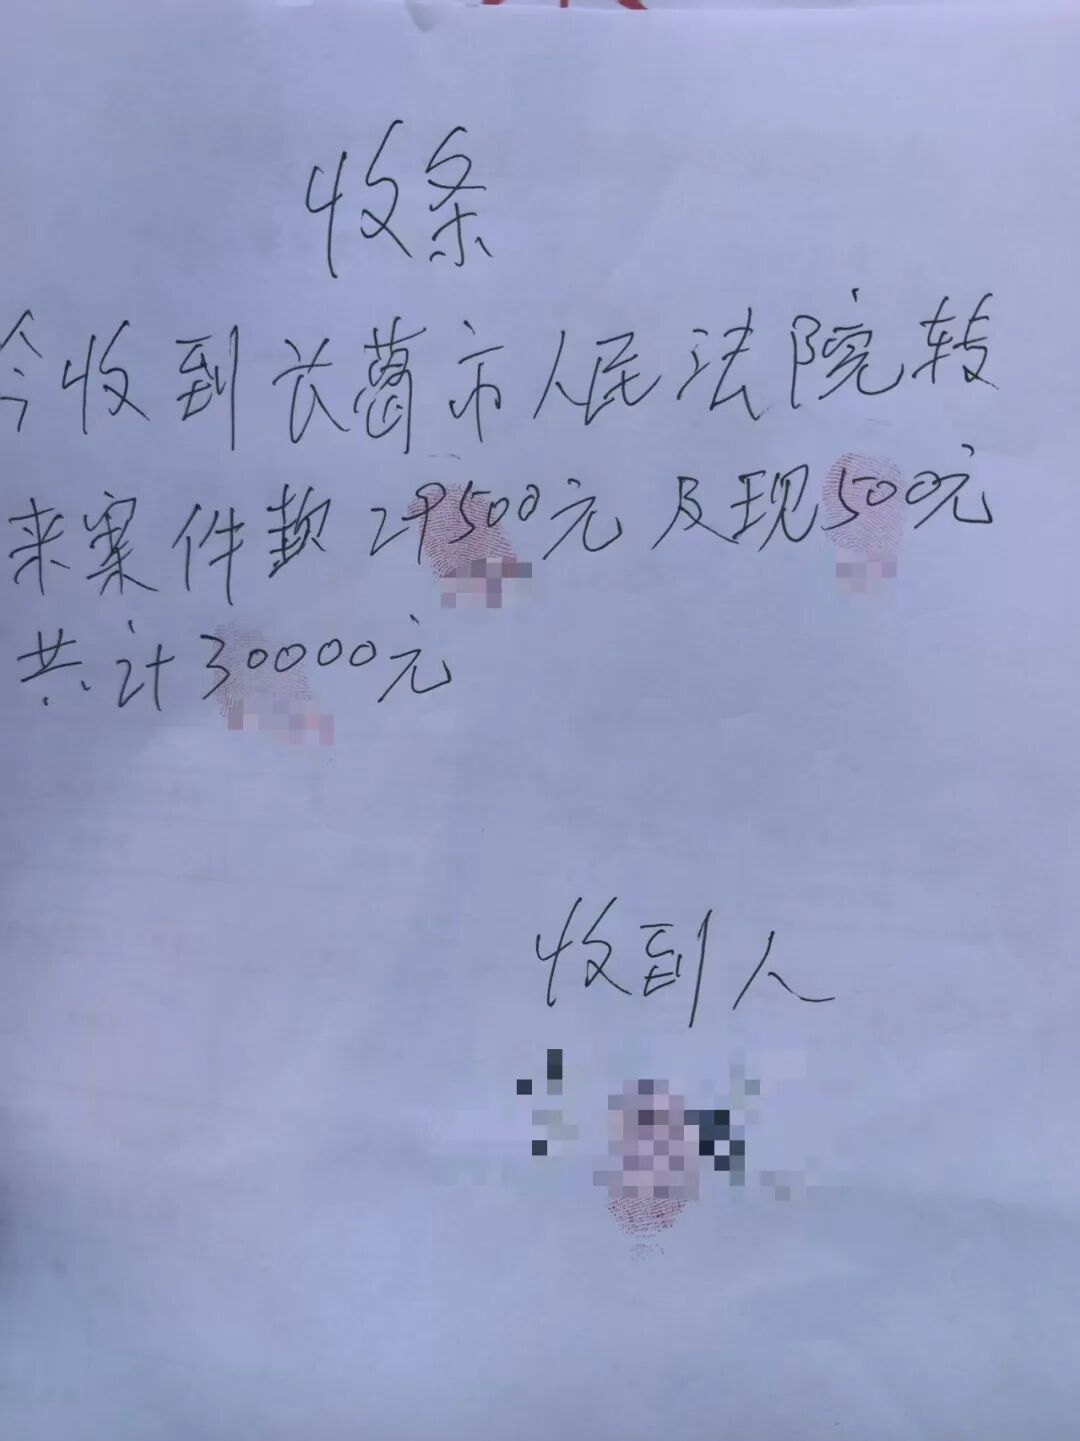 收条
今收到长葛市人民法院转
来案件款29500元及现500元
共计30000元
收到人